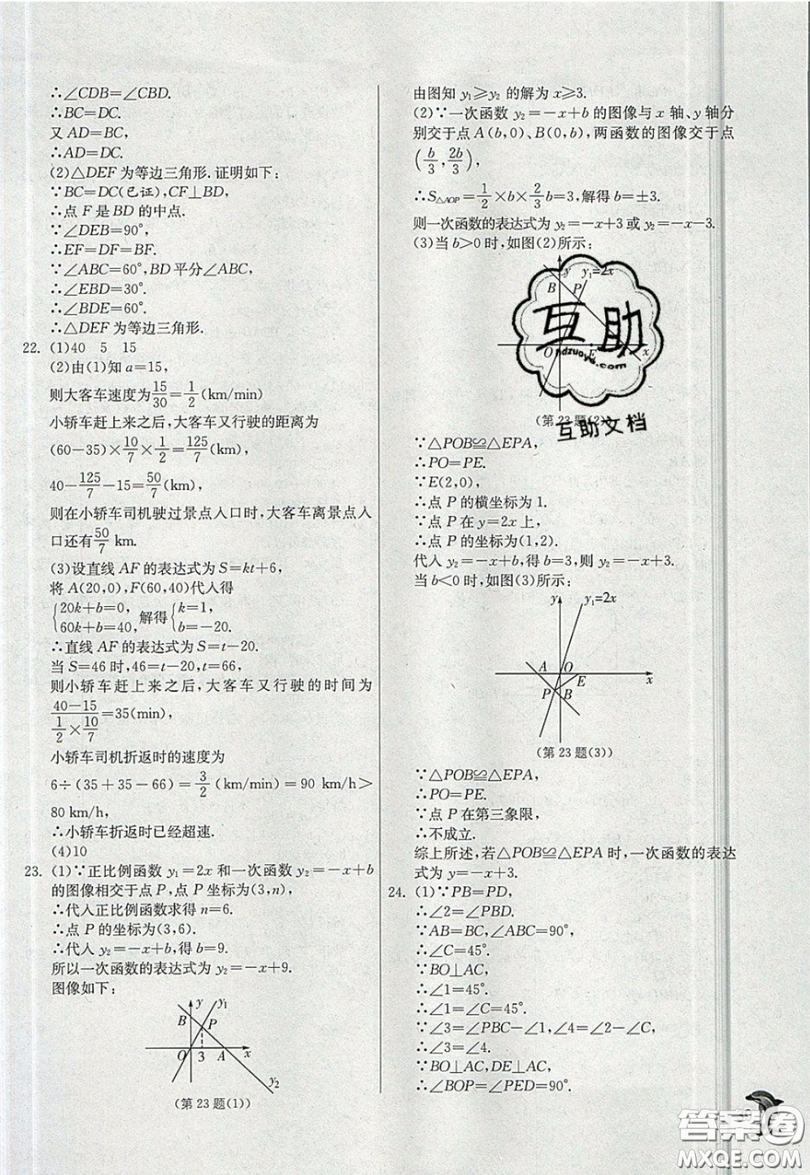 ∴∠CDB=∠CBD.
∴BC=DC.
又 AD=BC,
∴AD=DC.
(2)△DEF 为等边三角形. 证明如下:
∵BC=DC(已证),CF⊥BD,
∴点 F 是 BD 的中点.
∵∠DEB=90°,
∴EF=DF=BF.
∵∠ABC=60°,BD 平分∠ABC,
∴∠EBD=30°.
∴∠BDE=60°.
∴△DEF 为等边三角形.
22. (1)40 5 15
(2)由(1)知 a=15,
则大客车速度为15/30=1/2(km/min)
小轿车赶上来之后,大客车又行驶的距离为
(60-35)×10/7×1/2=125/7(km),
40-125/7-15=50/7(km),
则在小轿车司机驶过景点入口时,大客车离景点入
口还有50/7 km.
(3)设直线 AF 的表达式为 S=kt+6,
将 A(20,0),F(60,40)代入得
{20k+b=0, 60k+b=40, 解得{k=1, b=-20.
∴直线 AF 的表达式为 S=t-20.
当 S=46 时,46=t-20,t=66,
则小轿车赶上来之后,大客车又行驶的时间为
(40-15)/(1/2×10/7)=35(min),
小轿车司机折返时的速度为
6÷(35+35-66)=3/2(km/min)=90 km/h>
80 km/h,
∴小轿车折返时已经超速.
(4)10
23. (1)∵正比例函数 y₁=2x 和一次函数 y₂=-x+b
的图像相交于点 P,点 P 坐标为(3,n),
∴代入正比例函数求得 n=6.
∴点 P 的坐标为(3,6).
∴代入 y₂=-x+b,得 b=9.
所以一次函数的表达式为 y₂=-x+9.
图像如下:
y y₁
B P
O 3 A x
y₂
(第 23 题(1))
由图知 y₁≥y₂ 的解为 x≥3.
(2)∵一次函数 y₂=-x+b 的图像与 x 轴、y 轴分
别交于点 A(b,0)、B(0,b),两函数的图像交于点
(b/3,2b/3),
∴S△AOP=1/2×b×2/3b=3,解得 b=±3.
则一次函数的表达式为 y₂=-x+3 或 y₂=-x-3.
(3)当 b>0 时,如图(2)所示:
y y₁=2x
B P
O E x
互助
ndzuoye.com
(第 23 题(2))
互助文档
∵△POB≌△EPA,
∴PO=PE.
∵E(2,0),
∴点 P 的横坐标为 1.
∵点 P 在 y=2x 上,
∴点 P 的坐标为(1,2).
代入 y₂=-x+b,得 b=3,则 y₂=-x+3.
当 b<0 时,如图(3)所示:
y y₁=2x
A O
E x
P B
(第 23 题(3))
∵△POB≌△EPA,
∴PO=PE.
∵点 P 在第三象限,
∴不成立.
综上所述,若△POB≌△EPA 时,一次函数的表达
式为 y=-x+3.
24. (1)∵PB=PD,
∴∠2=∠PBD.
∵AB=BC,∠ABC=90°,
∴∠C=45°.
∵BO⊥AC,
∴∠1=45°.
∴∠1=∠C=45°.
∵∠3=∠PBC-∠1,∠4=∠2-∠C,
∴∠3=∠4.
∵BO⊥AC,DE⊥AC,
∴∠BOP=∠PED=90°.
答案圈
MXQE.COM